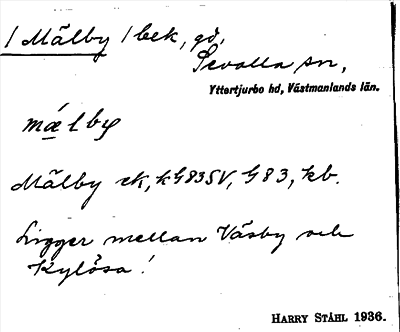 1 Mälby 1 bek, gd,
Sevalla sn,
Yttertjurbo hd, Västmanlands län.
mǽlby
Mälby ek, kG83SV, G83, kb.
Ligger mellan Väsby och
Kylösa!
HARRY STÅHL 1936.